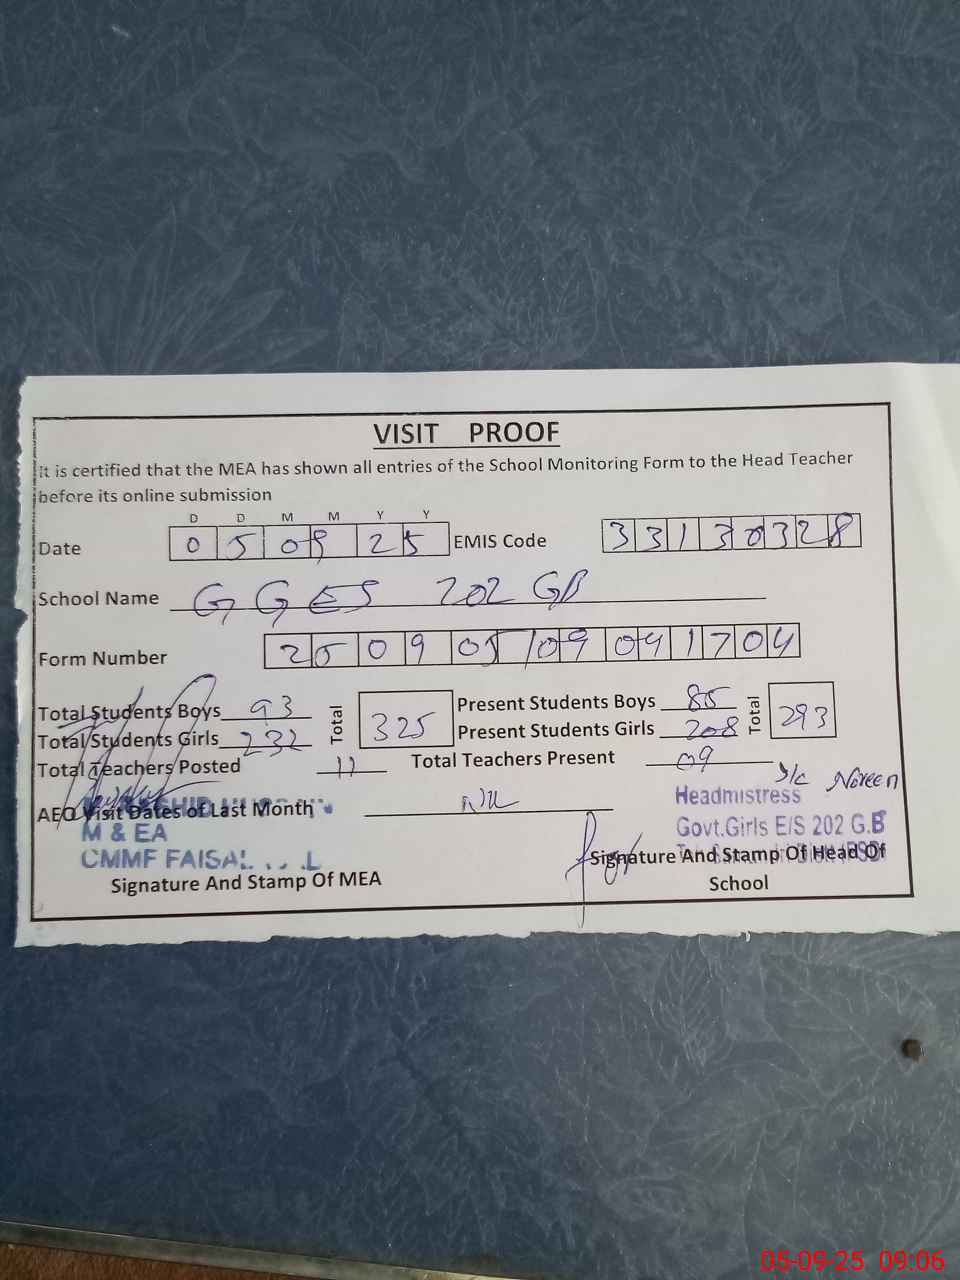 VISIT PROOF
It is certified that the MEA has shown all entries of the School Monitoring Form to the Head Teacher
before its online submission
D D M M Y Y
Date 0 5 0 9 2 5 EMIS Code 3 3 1 3 0 3 2 8
School Name GGES 202 GB
Form Number 2 5 0 9 05 / 0 9 0 4 1 7 0 4
Total Students Boys 93 Total 325 Present Students Boys 85 Total 293
Total Students Girls 232 Present Students Girls 208
Total Teachers Posted 11 Total Teachers Present 09
I/c Noreen
AEO Visit Dates of Last Month Nil
Headmistress
M & EA
Govt.Girls E/S 202 G.B
CMMF FAISAL
Signature And Stamp Of MEA
Signature And Stamp Of Head Of
School
05-09-25 09:06